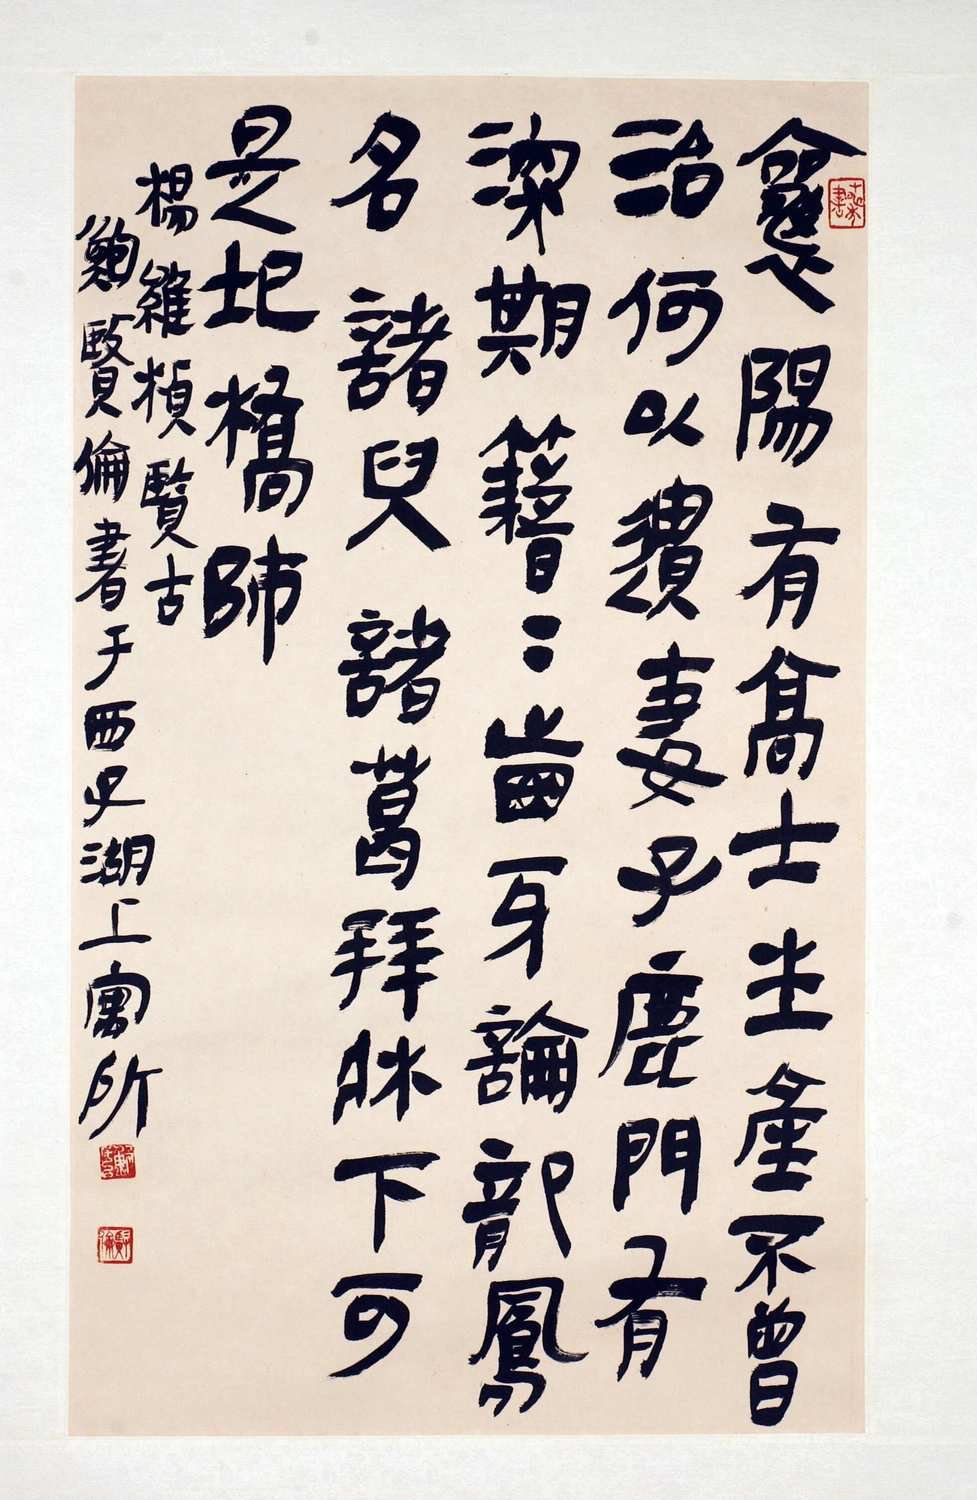 襄陽有高士生產不曾
治何以遺妻子鹿門有
深期籍〻齒牙論龍鳳
名諸兒諸葛拜牀下可
是圯橋師
楊維楨覽古
鮑賢倫書于西子湖上寓所
賢倫